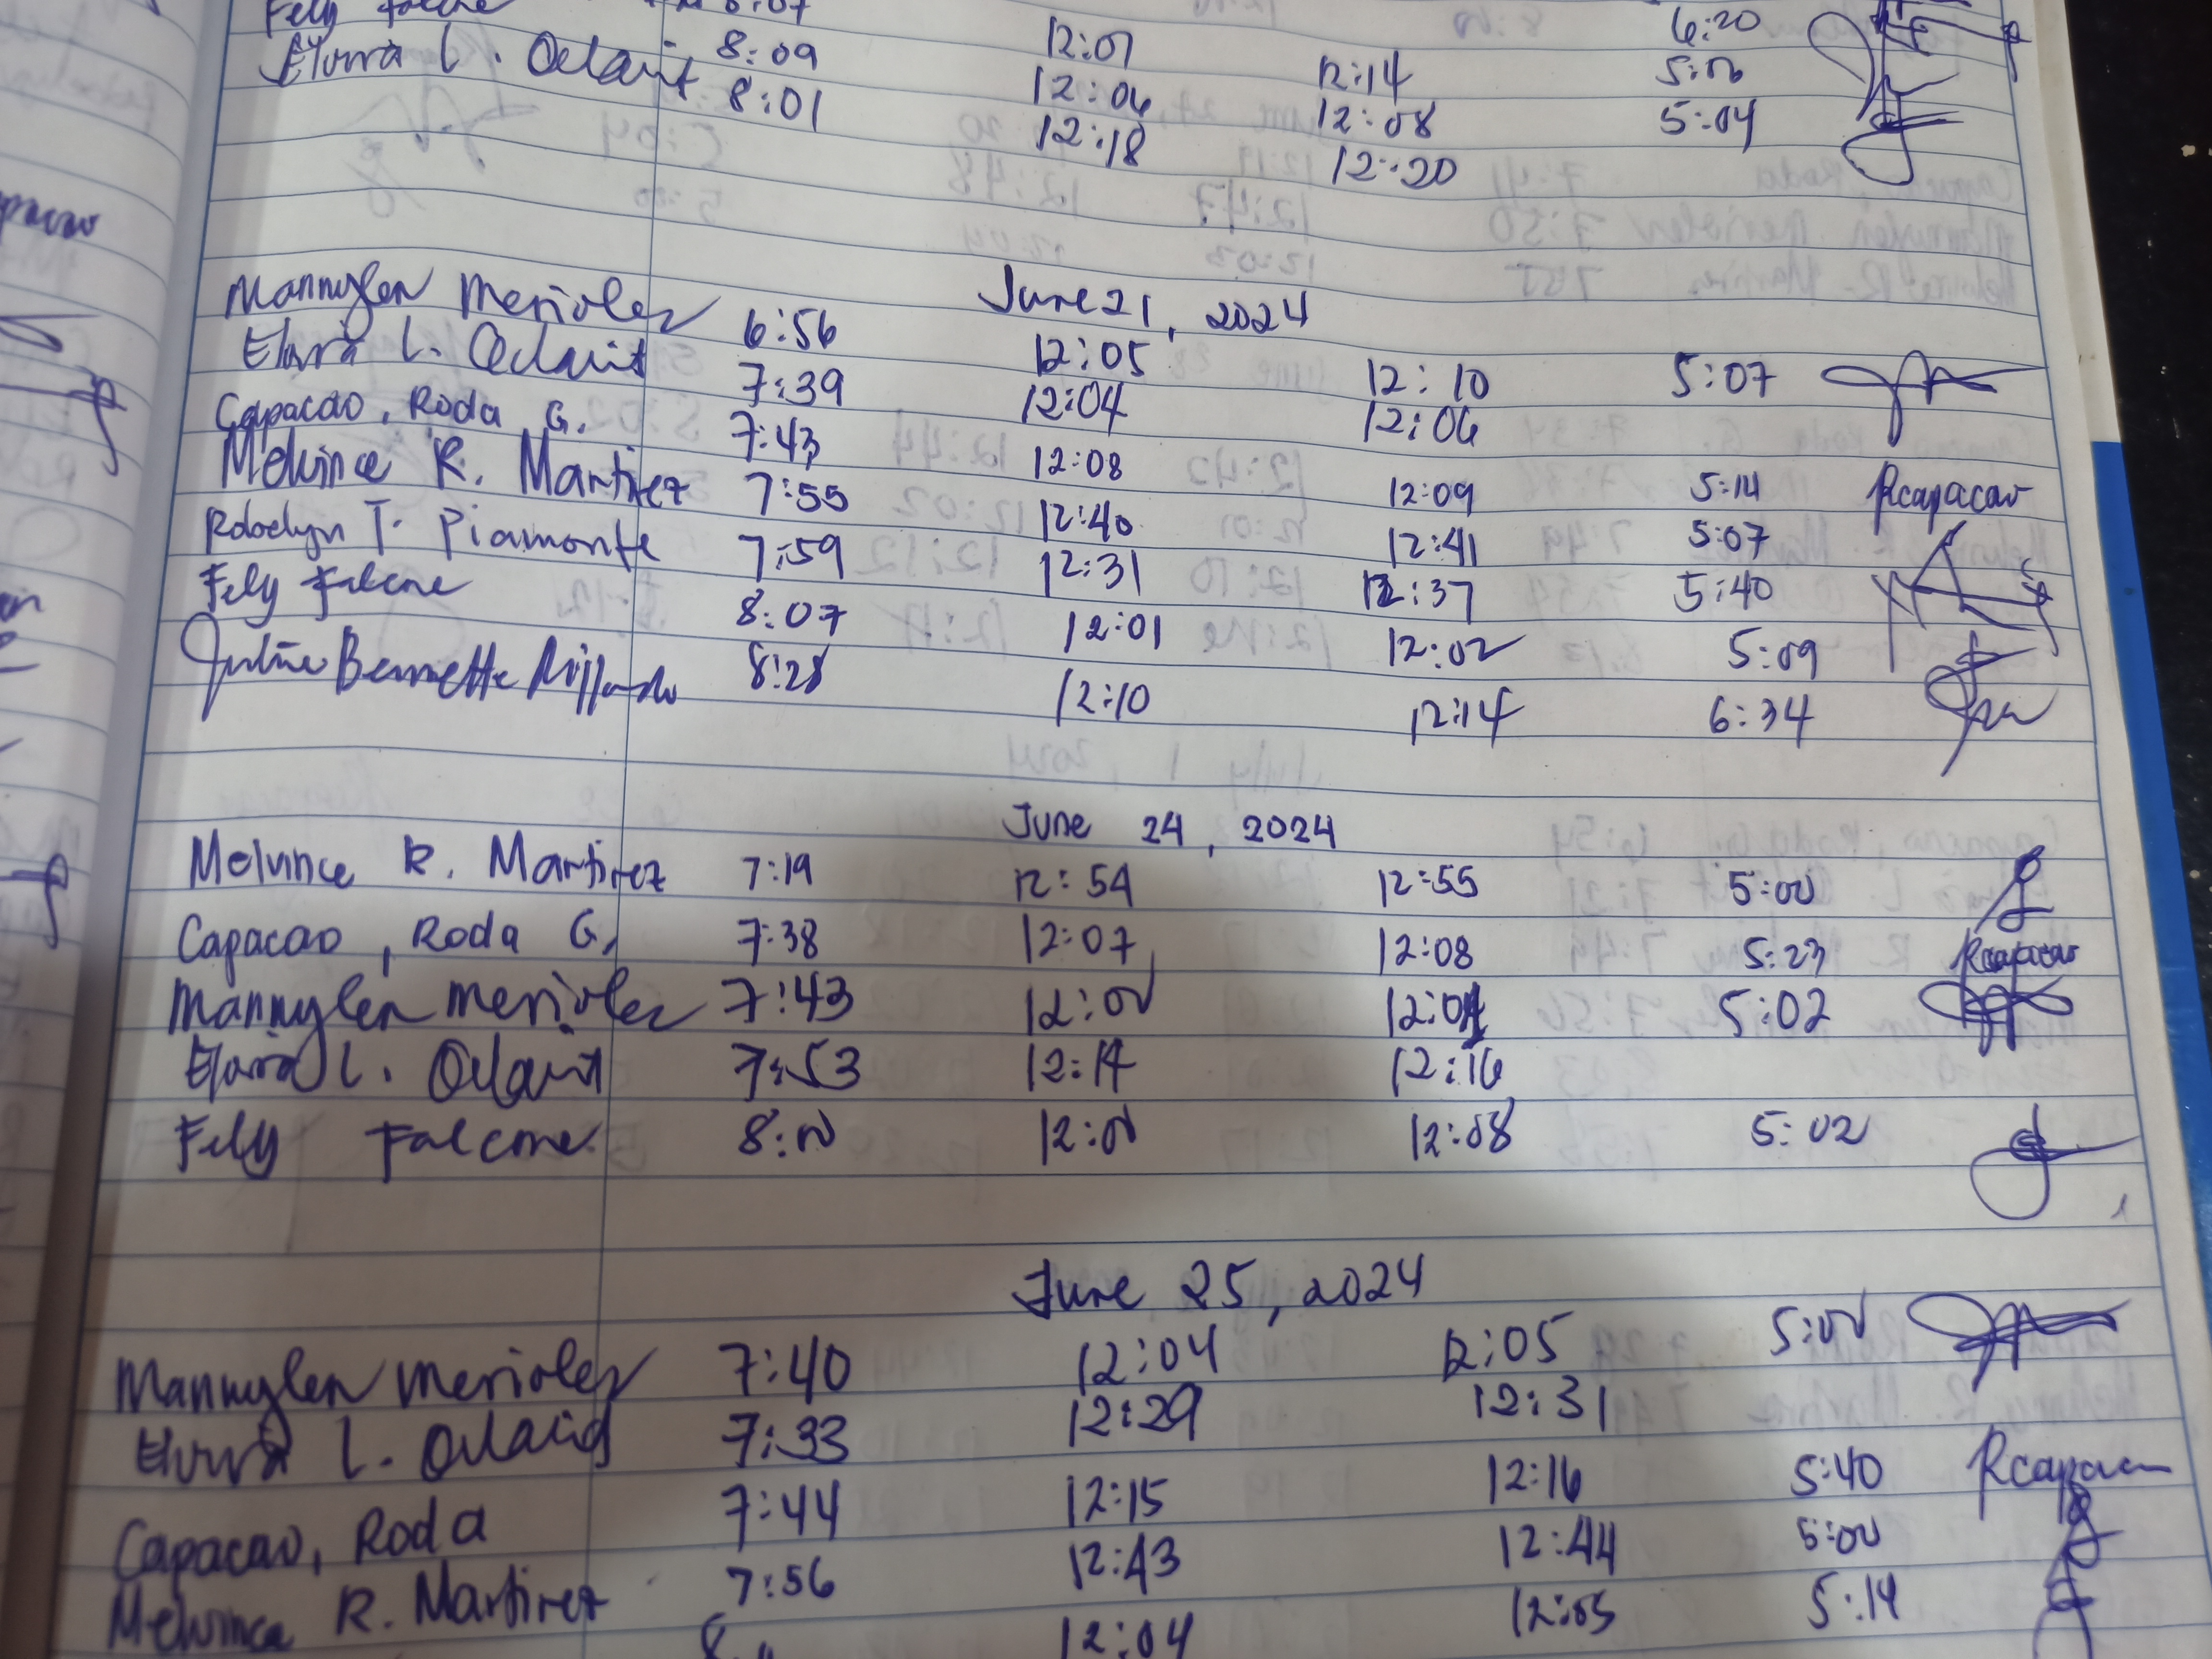 Fely Falcone 8:07 12:01 6:20
Elvira L. Odauit 8:09 12:06 12:14 5:00
8:01 12:18 12:08 5:04
12:20
June 21, 2024
Mannylen Merioles 6:56 12:05 12:10 5:07
Elvira L. Odauit 7:39 12:04 12:06
Capacao, Roda G. 7:43 12:08 12:09 5:14 Rcapacao
Melvince R. Martinez 7:55 12:40 12:41 5:07
Rdoelyn T. Piamonte 7:59 12:31 12:37 5:40
Fely Falcone 8:07 12:01 12:02 5:09
Bernnette 8:28 12:10 12:14 6:34
June 24, 2024
Melvince R. Martinez 7:19 12:54 12:55 5:00
Capacao, Roda G. 7:38 12:07 12:08 5:23 Rcapacao
Mannylen Merioles 7:43 12:00 12:01 5:02
Elvira L. Odauit 7:53 12:14 12:16
Fely Falcone 8:00 12:00 12:08 5:02
June 25, 2024
Mannylen Merioles 7:40 12:04 12:05 5:00
Elvira L. Odauit 7:33 12:29 12:31
Capacao, Roda 7:44 12:15 12:16 5:40 Rcapacao
Melvince R. Martinez 7:56 12:43 12:44 5:00
12:04 12:05 5:14